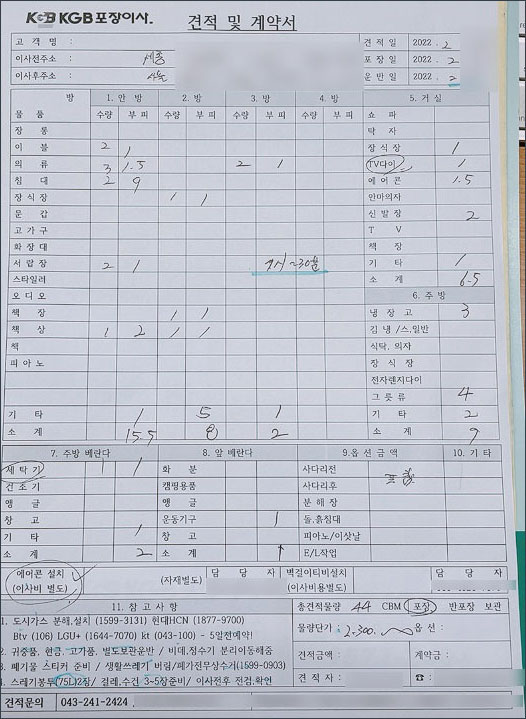 KGB KGB포장이사. 견적 및 계약서
고 객 명 : 견적일 2022. 2
이사전주소 : 세종 포장일 2022. 2
이사후주소 : 서울 운반일 2022. 2
방 1. 안 방 2. 방 3. 방 4. 방 5. 거 실
물 품 수량 부 피 수량 부 피 수량 부 피 수량 부 피 쇼 파
장 롱 탁 자
이 불 2 1 장 식 장 1
의 류 3 1.5 2 1 TV다이 1
침 대 2 9 에 어 콘 1.5
장 식 장 1 1 안마의자
문 갑 신 발 장 2
고 가 구 T V
화 장 대 책 장
서 랍 장 2 1 기 타 1
스타일러 소 계 6.5
오 디 오 6. 주 방
책 장 1 1 냉 장 고 3
책 상 1 2 1 1 김 냉 /스.일반
책 식탁. 의자
피 아 노 장 식 장
전자렌지다이
그 릇 류 4
기 타 1 5 1 기 타 2
소 계 15.5 8 2 소 계 9
7. 주방 베란다 8. 앞 베란다 9.옵 션 금 액 10. 기 타
세 탁 기 1 1 화 분 사다리전
건 조 기 캠핑용품 사다리후
앵 글 앵 글 분 해 장
창 고 운동기구 1 돌.흙침대
기 타 1 창 고 피아노/이삿날
소 계 2 소 계 1 E/L작업
에어콘 설치 (이사비 별도) (자재별도) 담 당 자 벽걸이티비설치 (이사비용별도) 담 당 자
11. 참 고 사 항 총견적물량 44 CBM 포장 반포장 보관
1. 도시가스 분해.설치 (1599-3131) 현대HCN (1877-9700) 물량단가 : 2.300. 옵 션 :
Btv (106) LGU+ (1644-7070) kt (043-100) - 5일전예약!
2. 귀중품, 현금, 고가품, 별도보관운반 / 비데.정수기 분리이동해줌 견적금액 : 계약금 :
3. 폐기물 스티커 준비 / 생활쓰레기 버림/폐가전무상수거(1599-0903)
4. 스레기봉투(75L)2장/ 걸레.수건 3~5장준비/ 이사전후 점검.확인 견 적 자 : ☎ :
견적문의 043-241-2424